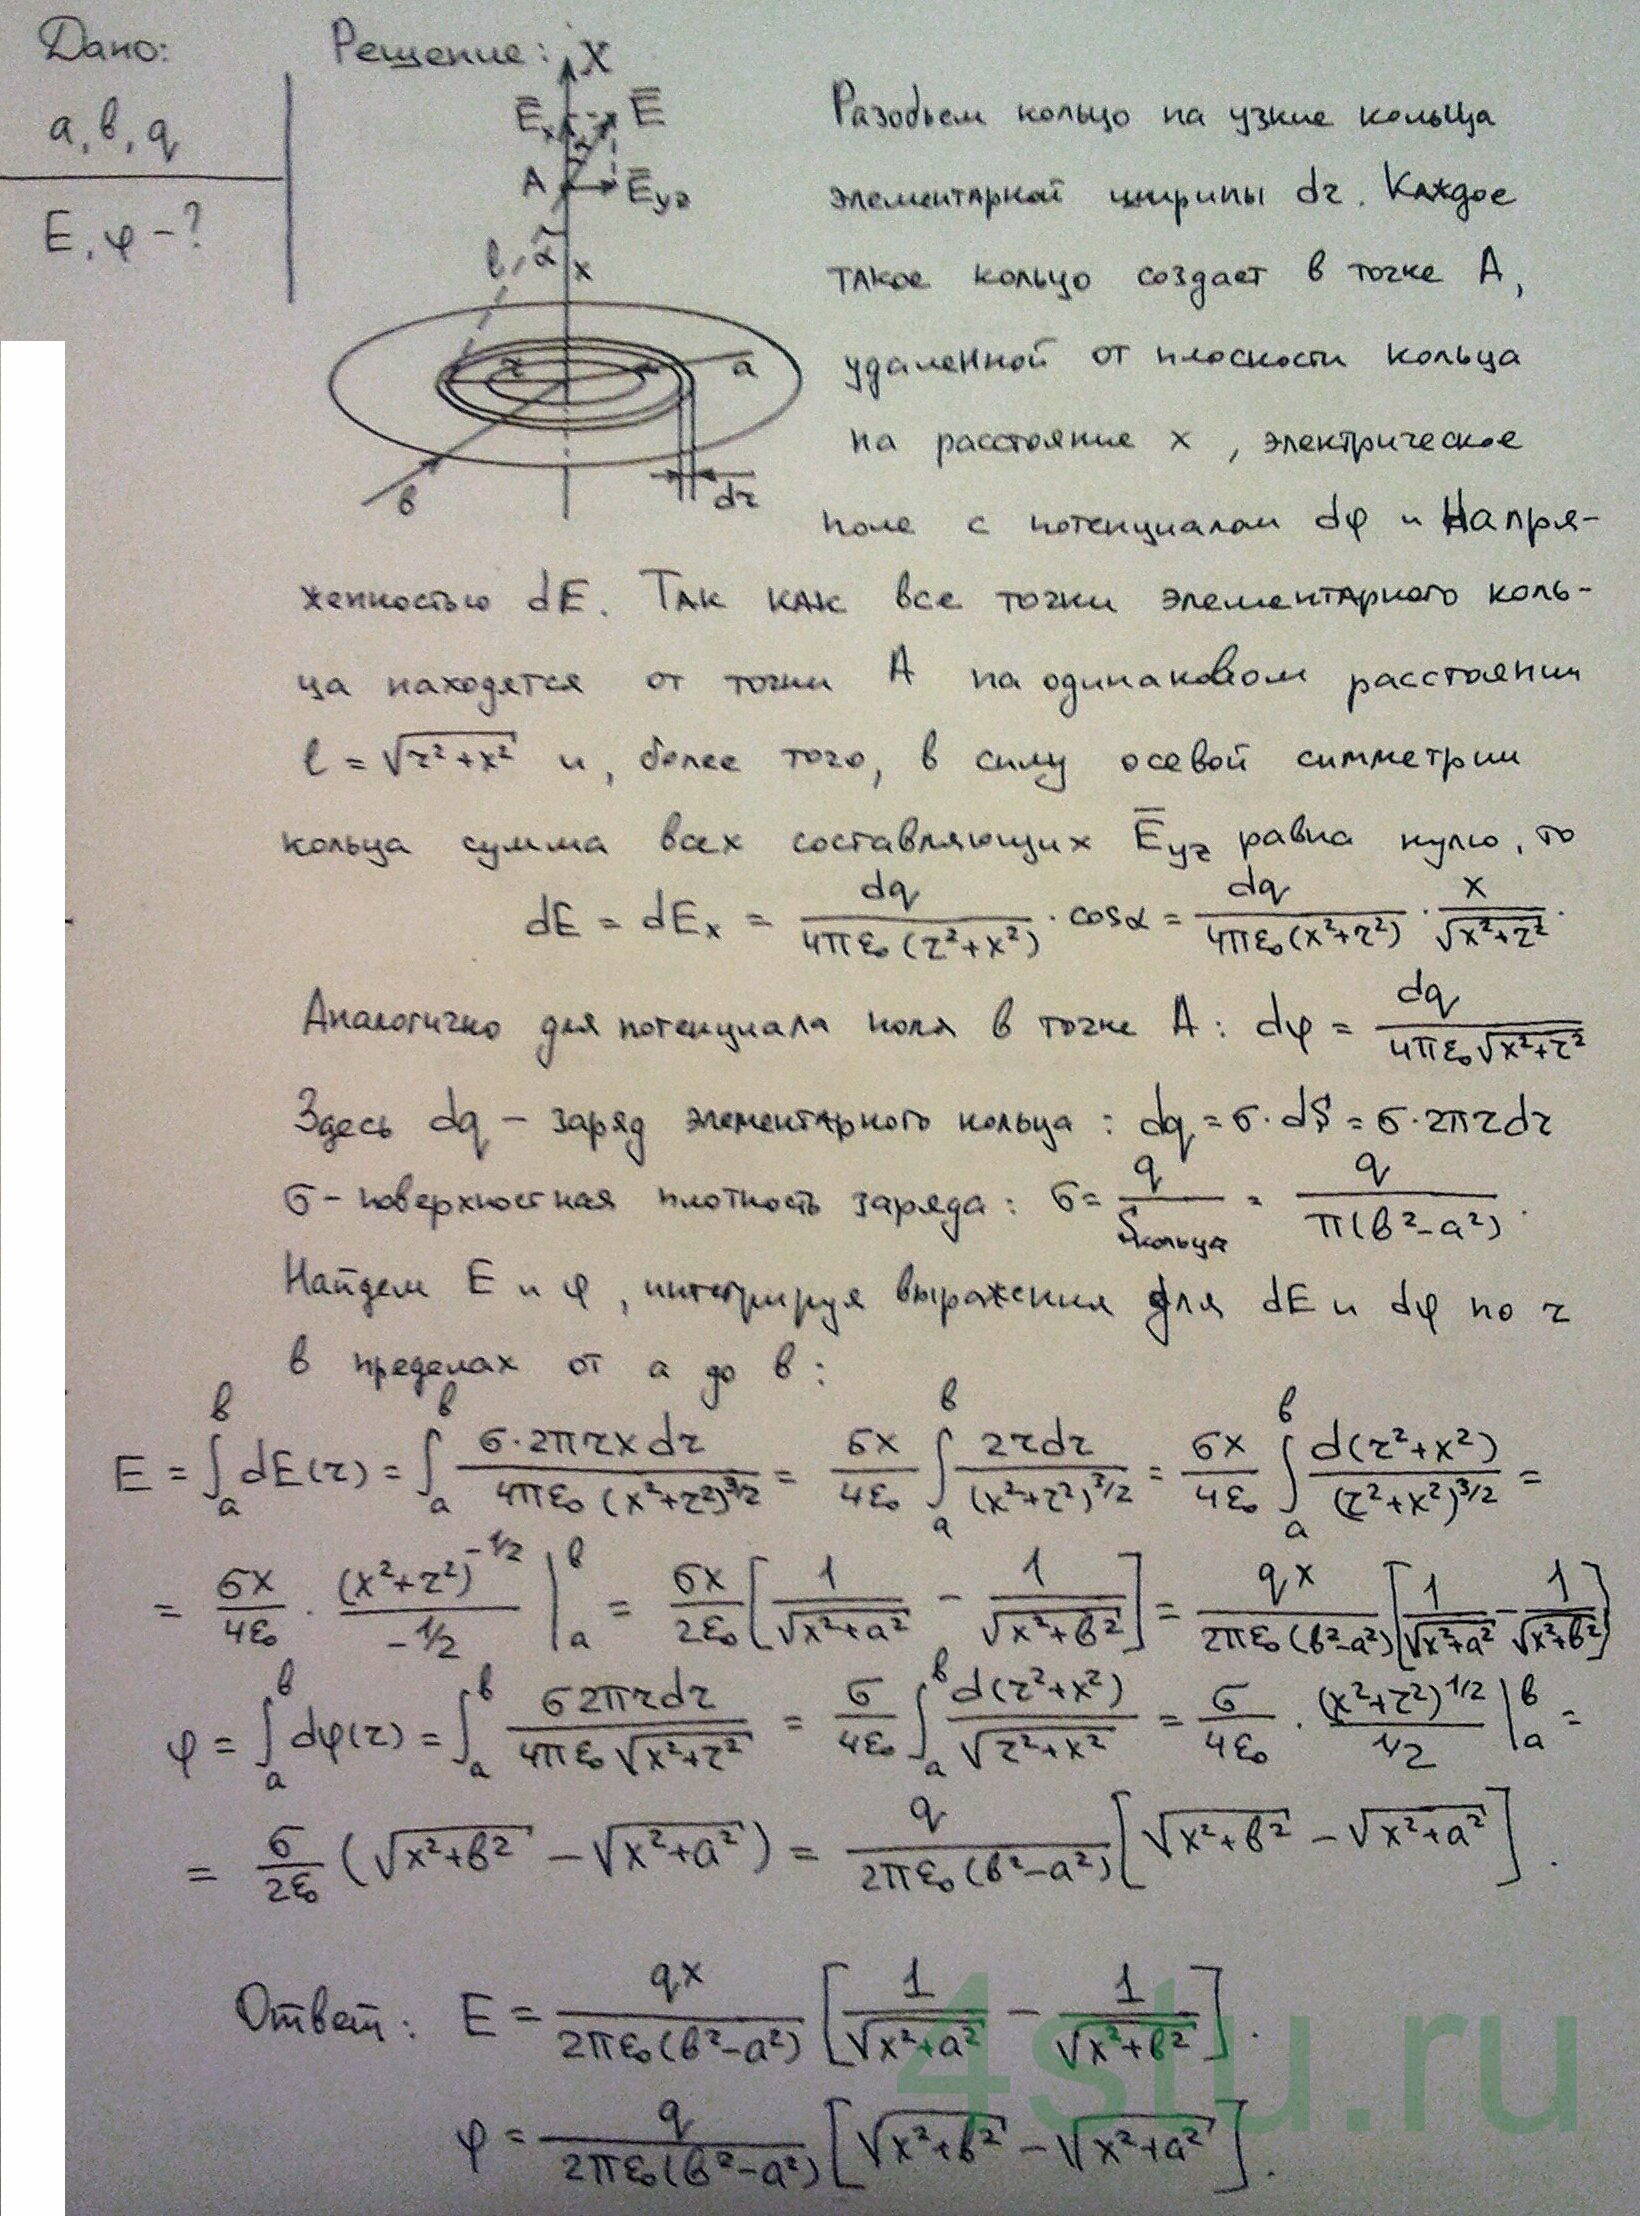 Дано:
Решение:
a, b, q
E, φ - ?
X
E̅x
E̅
α
A
E̅yz
l
α
x
r
a
b
dr
Разобьем кольцо на узкие кольца
элементарной ширины dr. Каждое
такое кольцо создает в точке A,
удаленной от плоскости кольца
на расстояние x, электрическое
поле с потенциалом dφ и напря-
женностью dE. Так как все точки элементарного коль-
ца находятся от точки A на одинаковом расстоянии
l = √(r²+x²) и, более того, в силу осевой симметрии
кольца сумма всех составляющих E̅yz равна нулю, то
dE = dEx = dq/(4πε₀(r²+x²)) · cosα = dq/(4πε₀(x²+r²)) · x/√(x²+r²).
Аналогично для потенциала поля в точке A: dφ = dq/(4πε₀√(x²+r²))
Здесь dq – заряд элементарного кольца: dq = σ·dS = σ·2πrdr
σ – поверхностная плотность заряда: σ = q/Sкольца = q/(π(b²-a²)).
Найдем E и φ, интегрируя выражения для dE и dφ по r
в пределах от a до b:
E = ∫ₐᵇ dE(r) = ∫ₐᵇ σ·2πrxdr/(4πε₀(x²+r²)^3/2) = σx/4ε₀ ∫ₐᵇ 2rdr/(x²+r²)^3/2 = σx/4ε₀ ∫ₐᵇ d(r²+x²)/(r²+x²)^3/2 =
= σx/4ε₀ · (x²+r²)^-1/2/(-1/2) |ₐᵇ = σx/2ε₀ [1/√(x²+a²) - 1/√(x²+b²)] = qx/(2πε₀(b²-a²)) [1/√(x²+a²) - 1/√(x²+b²)]
φ = ∫ₐᵇ dφ(r) = ∫ₐᵇ σ2πrdr/(4πε₀√(x²+r²)) = σ/4ε₀ ∫ₐᵇ d(r²+x²)/√(r²+x²) = σ/4ε₀ · (x²+r²)^1/2/(1/2) |ₐᵇ =
= σ/2ε₀ (√(x²+b²) - √(x²+a²)) = q/(2πε₀(b²-a²)) [√(x²+b²) - √(x²+a²)].
Ответ: E = qx/(2πε₀(b²-a²)) [1/√(x²+a²) - 1/√(x²+b²)].
φ = q/(2πε₀(b²-a²)) [√(x²+b²) - √(x²+a²)].
4stu.ru